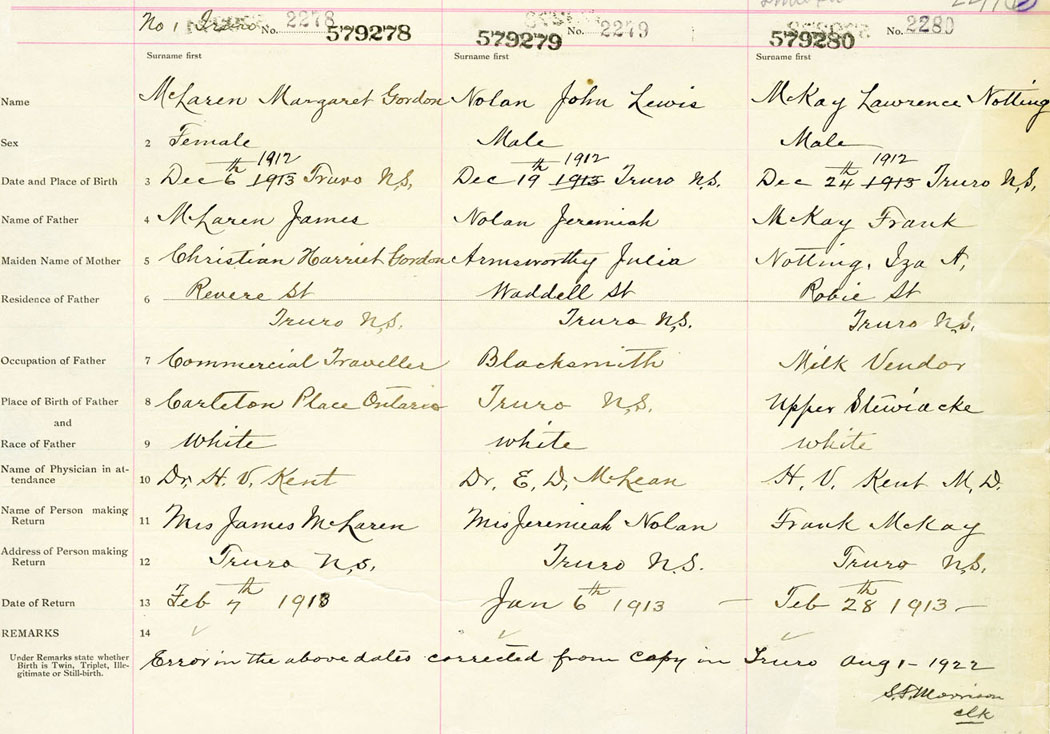 No 1
No. 2278 No. 2279 No. 2280
579278 579279 579280
Surname first Surname first Surname first
Name McLaren Margaret Gordon Nolan John Lewis McKay Lawrence Notting
Sex 2 Female Male Male
1912 1912 1912
Date and Place of Birth 3 Dec 6th 1913 Truro N.S. Dec 19th 1913 Truro N.S. Dec 24th 1913 Truro N.S.
Name of Father 4 McLaren James Nolan Jeremiah McKay Frank
Maiden Name of Mother 5 Christian Harriet Gordon Armsworthy Julia Notting, Iza A,
Residence of Father 6 Revere St Waddell St Robie St
Truro N.S. Truro N.S. Truro N.S.
Occupation of Father 7 Commercial Traveller Blacksmith Milk Vendor
Place of Birth of Father 8 Carleton Place Ontario Truro N.S. Upper Stewiacke
and
Race of Father 9 White white white
Name of Physician in at-
tendance 10 Dr. H. V. Kent Dr. E. D. McLean H. V. Kent M.D.
Name of Person making
Return 11 Mrs James McLaren Mrs Jeremiah Nolan Frank McKay
Address of Person making
Return 12 Truro N.S. Truro N.S. Truro N.S.
Date of Return 13 Feb 7th 1913 Jan 6th 1913 — Feb 28th 1913 —
REMARKS 14
Under Remarks state whether
Birth is Twin, Triplet, Ille-
gitimate or Still-birth.
Error in the above dates corrected from copy in Truro Aug 1 - 1922
Morrison
clk